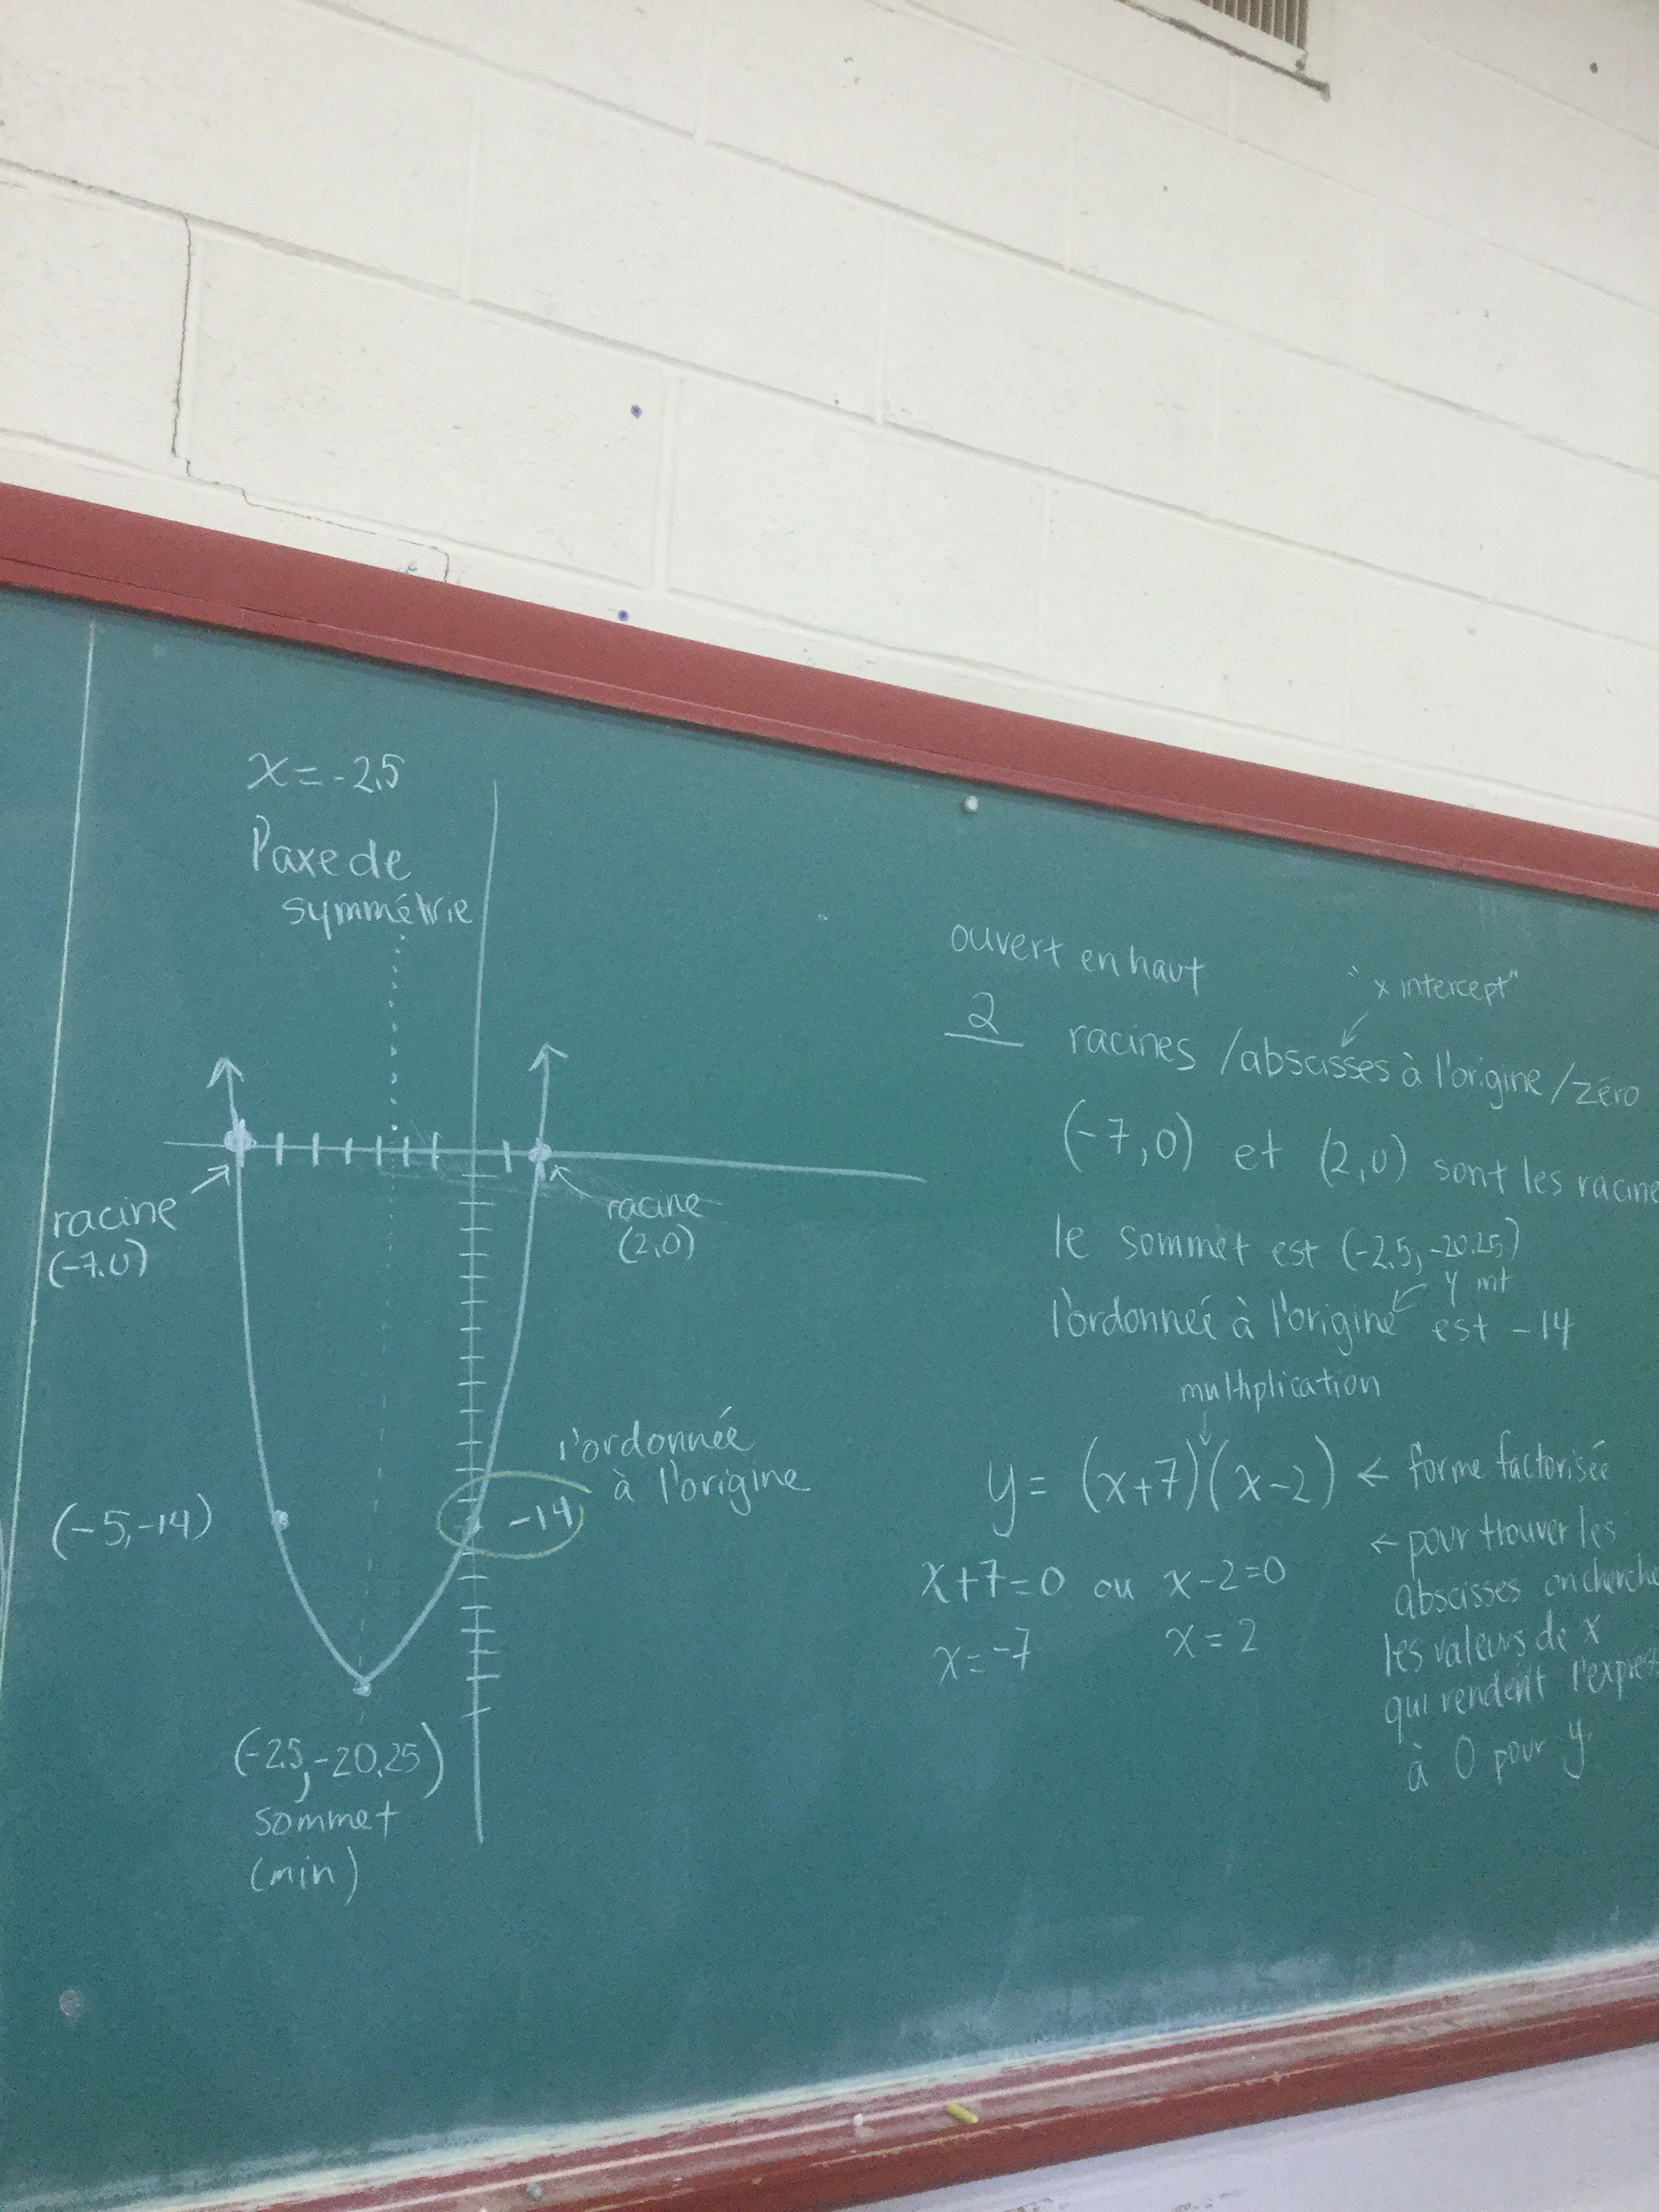 x=-2,5
l'axe de
symmétrie
racine
(-7,0)
racine
(2,0)
l'ordonnée
à l'origine
-14
(-5,-14)
(-2,5,-20,25)
sommet
(min)
ouvert en haut
"x intercept"
2 racines /abscisses à l'origine/zéro
(-7,0) et (2,0) sont les racine
le sommet est (-2,5, -20,25)
y int
l'ordonnée à l'origine est -14
multiplication
y= (x+7)(x-2) ← forme factorisée
x+7=0 ou x-2=0
x=-7 x=2
← pour trouver les
abscisses on cherche
les valeurs de x
qui rendent l'expres
à 0 pour y.